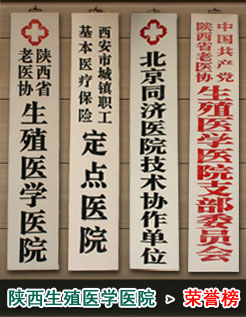 陕西省
老医协
生殖医学医院
西安市城镇职工
基本医疗保险
定点医院
北京同济医院技术协作单位
中国共产党
陕西省老医协
生殖医学医院支部委员会
陕西生殖医学医院 > 荣誉榜